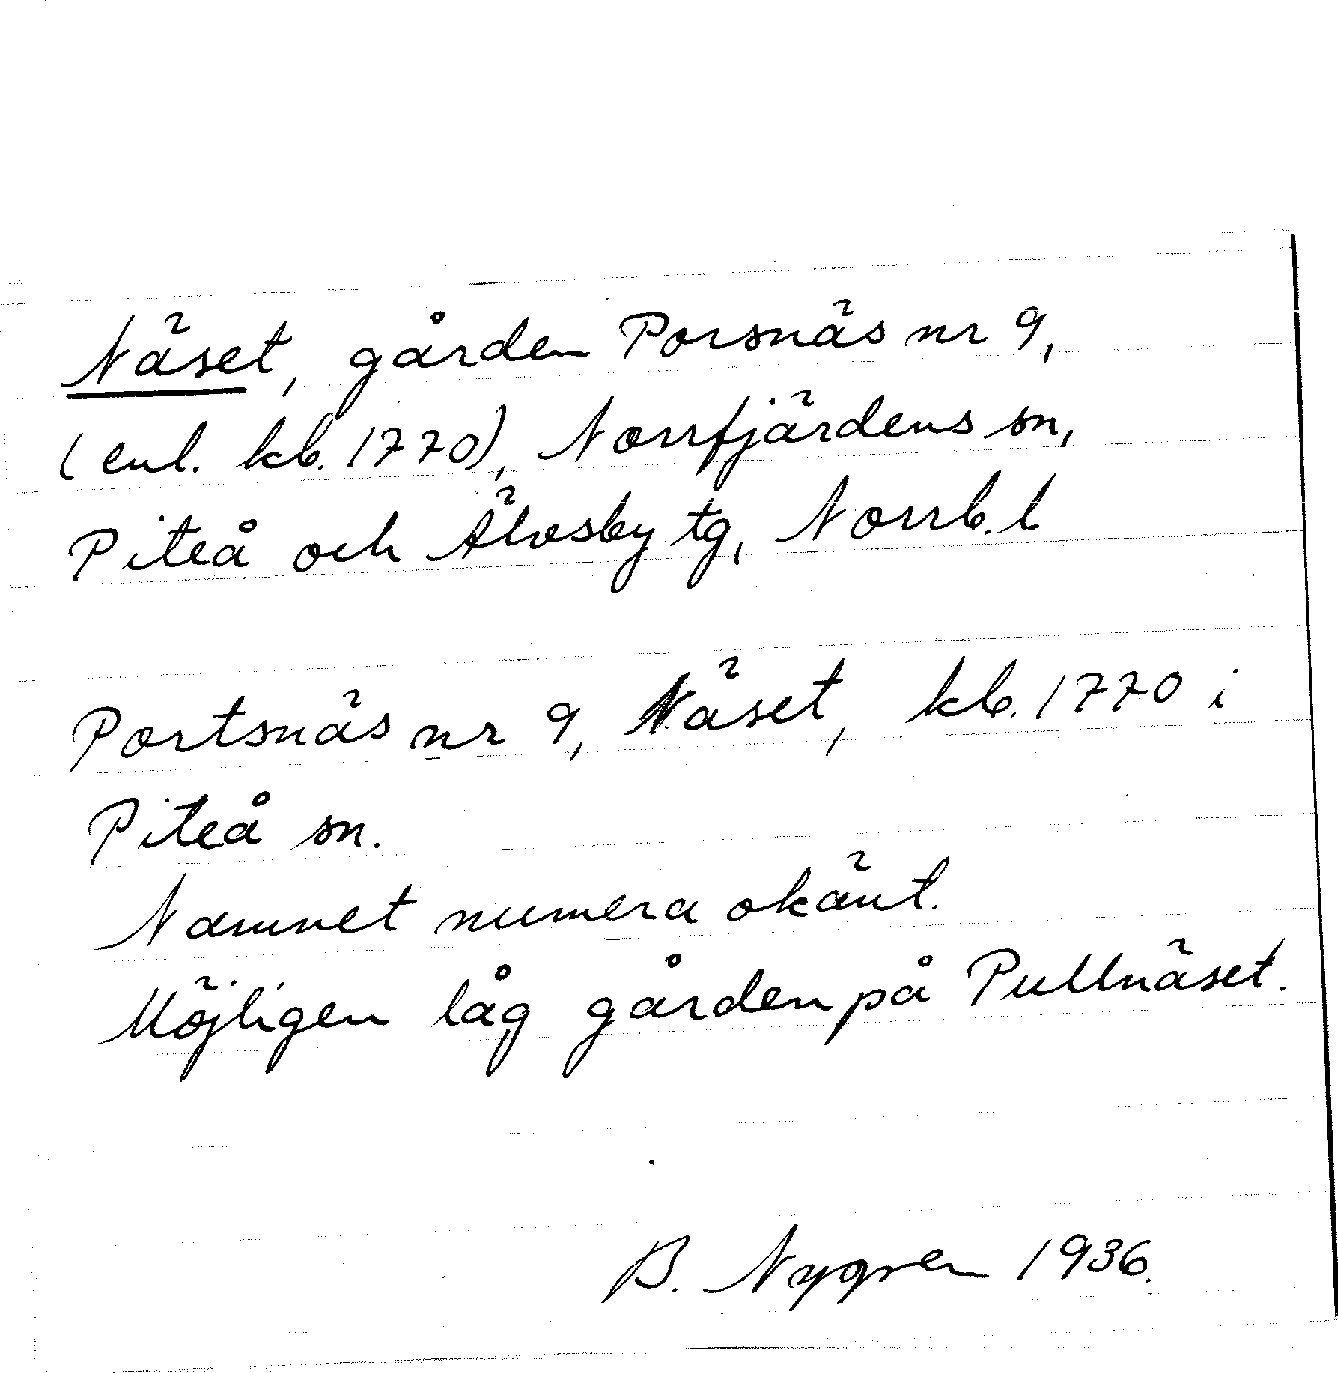 Näset, gården Porsnäs nr 9,
(enl. kb. 1770), Norrfjärdens sn,
Piteå och Älvsby tg, Norrb. l
Portsnäs nr 9, Näset, kb. 1770 i
Piteå sn.
Namnet numera okänt.
Möjligen låg gården på Pullnäset.
B. Nygren 1936.